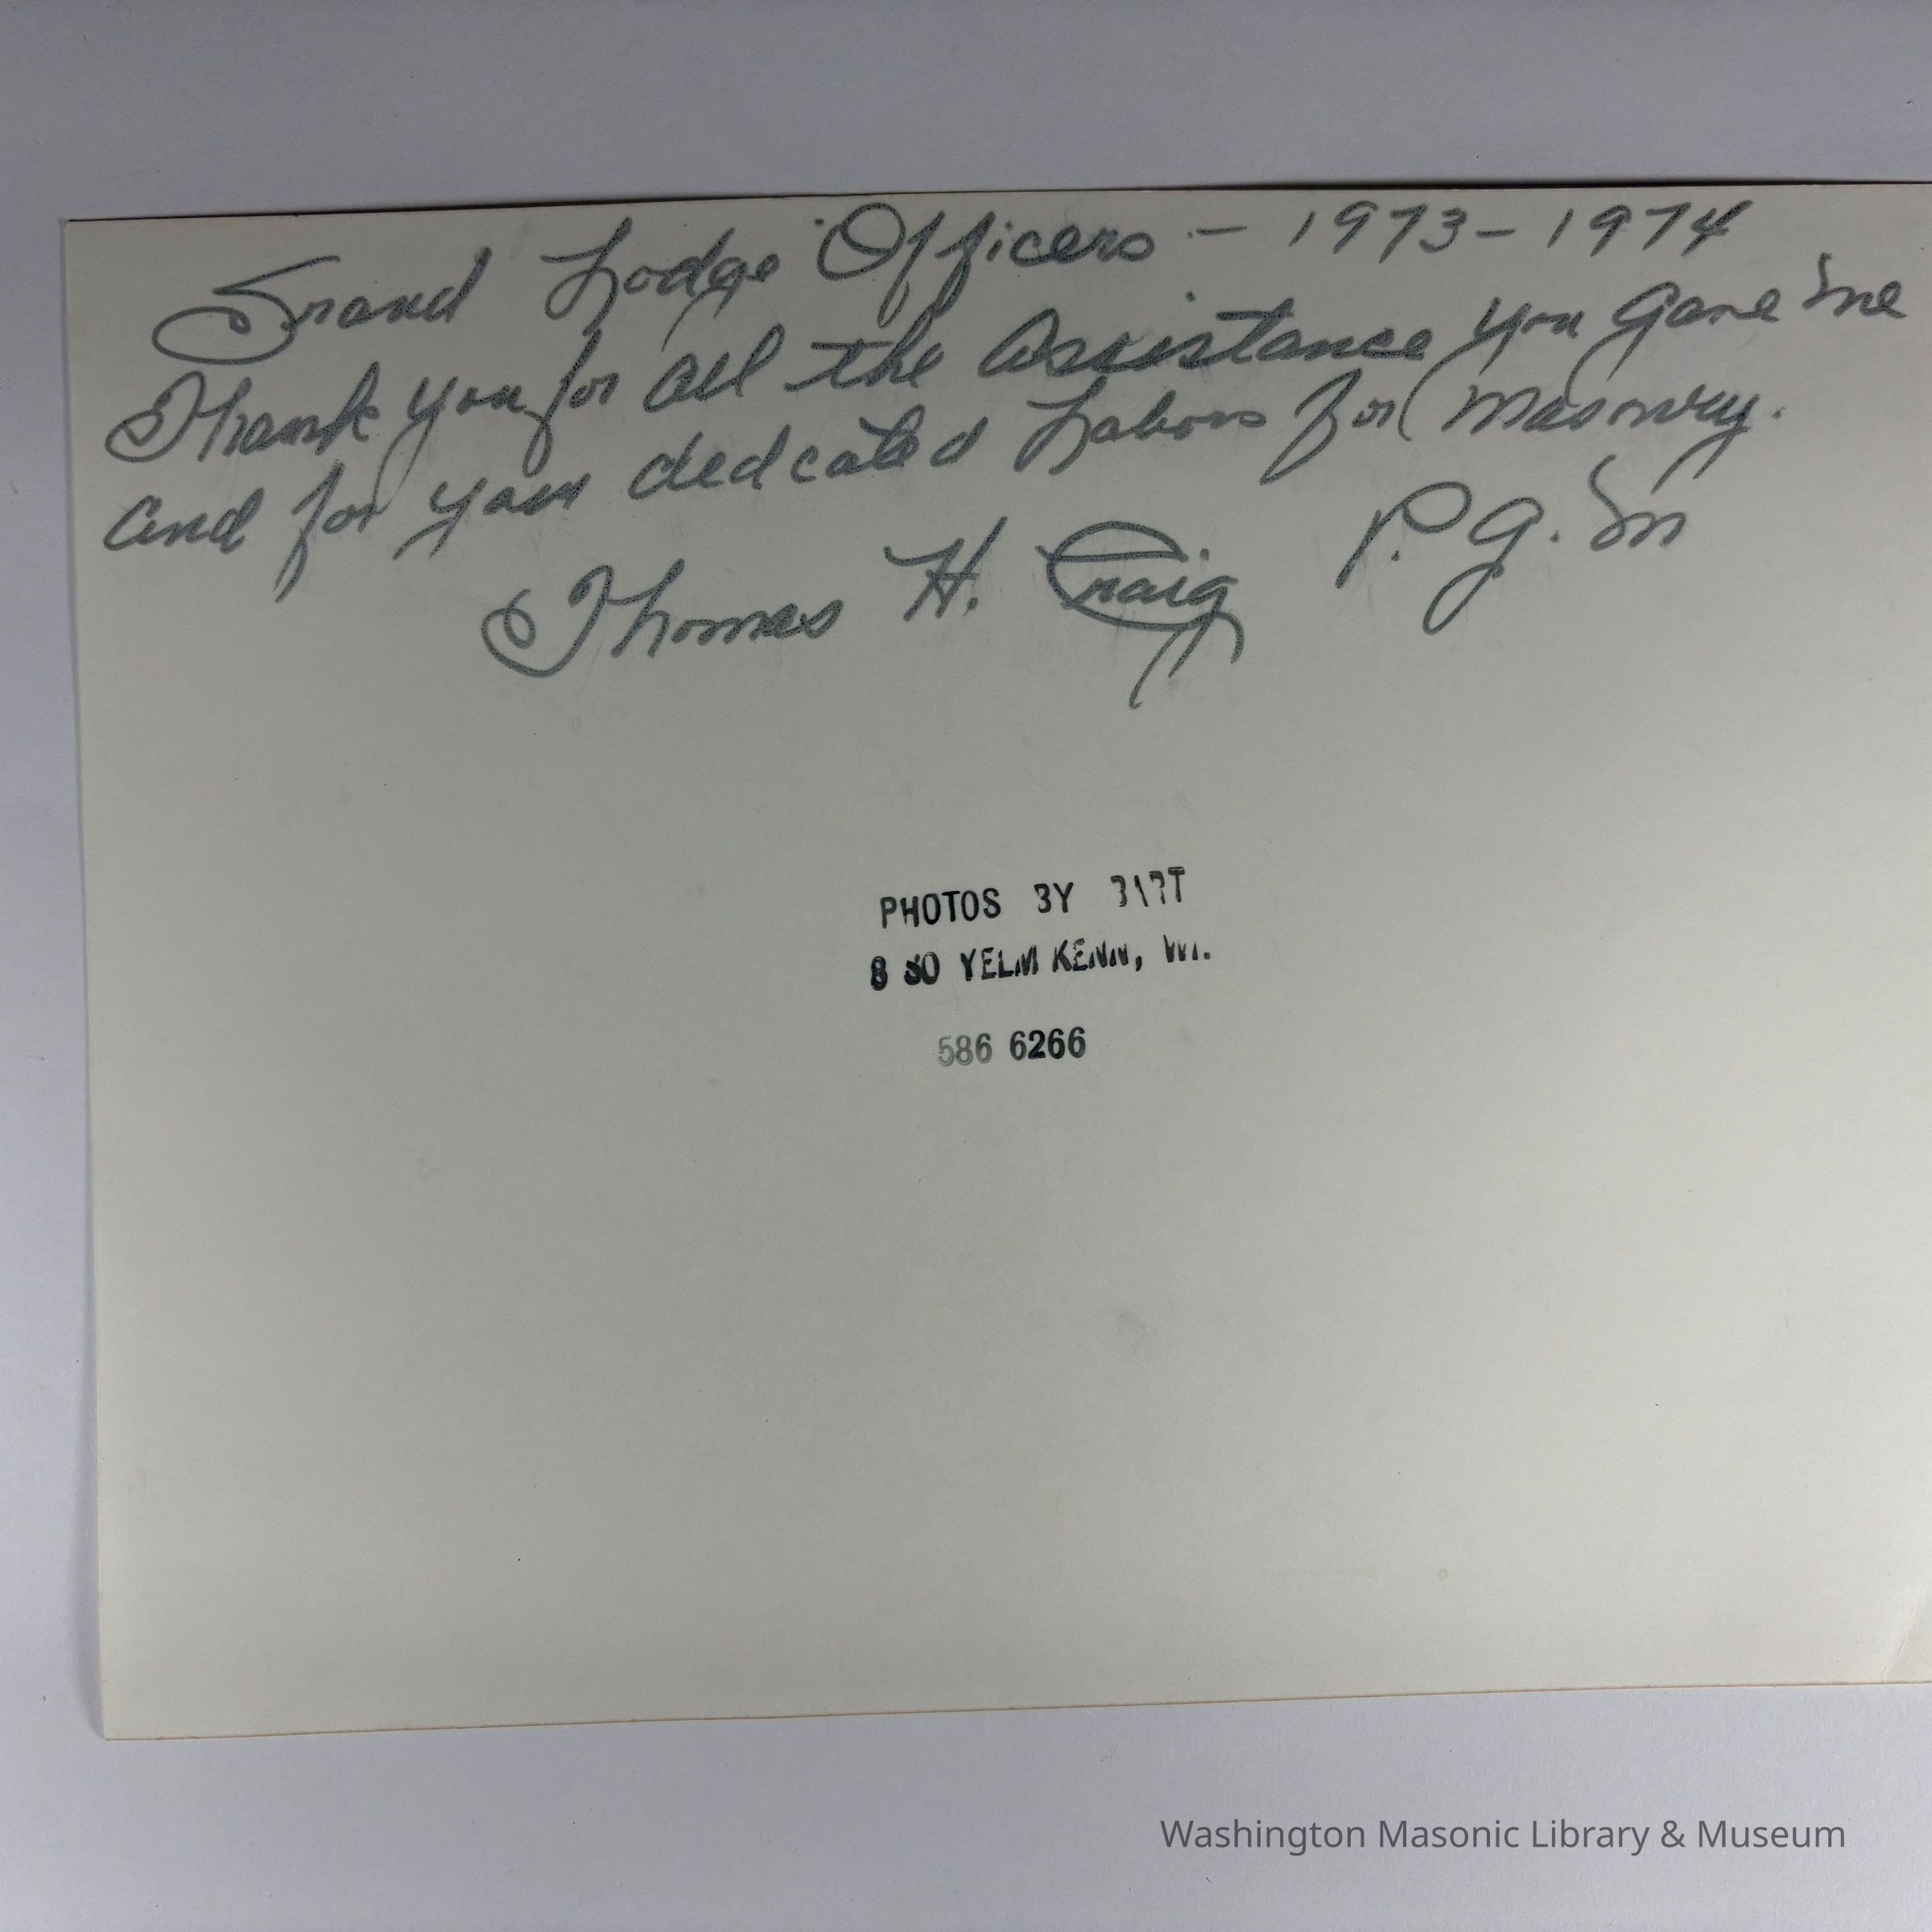 Grand Lodge Officers - 1973-1974
Thank you for all the assistance you gave me
and for your dedcated Labors for Masonry.
Thomas H. Craig P.G.M
PHOTOS BY BART
8 30 YELM KENN, WA.
586 6266
Washington Masonic Library & Museum